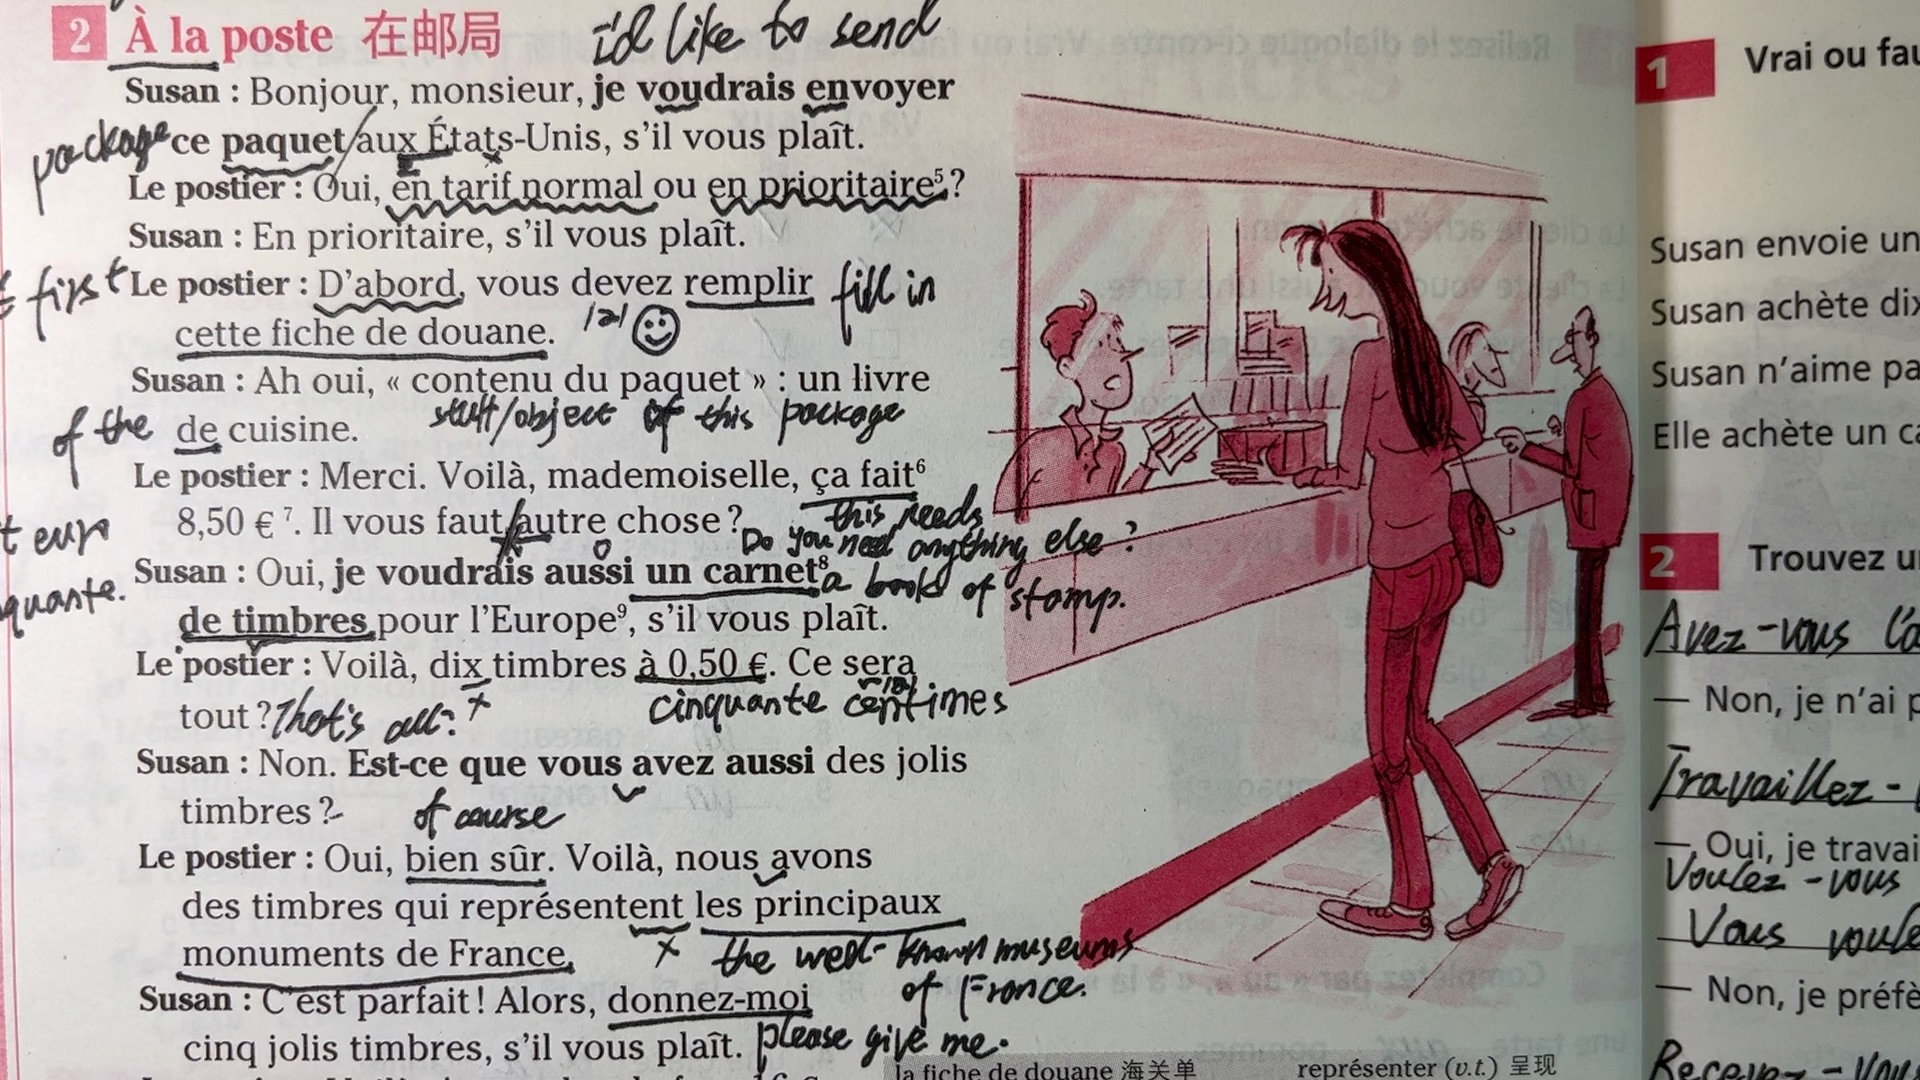 2 À la poste 在邮局 i'd like to send
Susan : Bonjour, monsieur, je voudrais envoyer
package ce paquet aux États-Unis, s'il vous plaît.
Le postier : Oui, en tarif normal ou en prioritaire⁵ ?
Susan : En prioritaire, s'il vous plaît.
first Le postier : D'abord, vous devez remplir fill in
cette fiche de douane.
Susan : Ah oui, « contenu du paquet » : un livre
of the de cuisine. stuff/object of this package
Le postier : Merci. Voilà, mademoiselle, ça fait⁶
8,50 € ⁷. Il vous faut autre chose ? this needs
Do you need anything else?
Susan : Oui, je voudrais aussi un carnet⁸ a book of stamp.
quante.
de timbres pour l'Europe⁹, s'il vous plaît.
Le postier : Voilà, dix timbres à 0,50 €. Ce sera
tout ? That's all? cinquante centimes
Susan : Non. Est-ce que vous avez aussi des jolis
timbres ? of course
Le postier : Oui, bien sûr. Voilà, nous avons
des timbres qui représentent les principaux
monuments de France. the well-known museums
of France.
Susan : C'est parfait ! Alors, donnez-moi
cinq jolis timbres, s'il vous plaît. please give me.
la fiche de douane 海关单 représenter (v.t.) 呈现
1 Vrai ou fau
Susan envoie un
Susan achète dix
Susan n'aime pa
Elle achète un ca
2 Trouvez u
Avez-vous
— Non, je n'ai p
Travaillez-
— Oui, je travai
Voulez-vous
Vous voule
— Non, je préfè